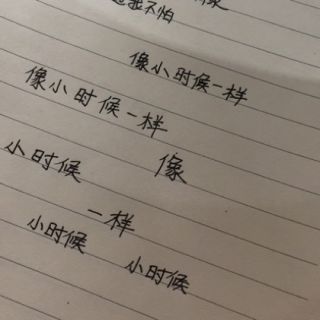 我不怕
像小时候一样
像小时候一样
小时候 像
一样
小时候 小时候